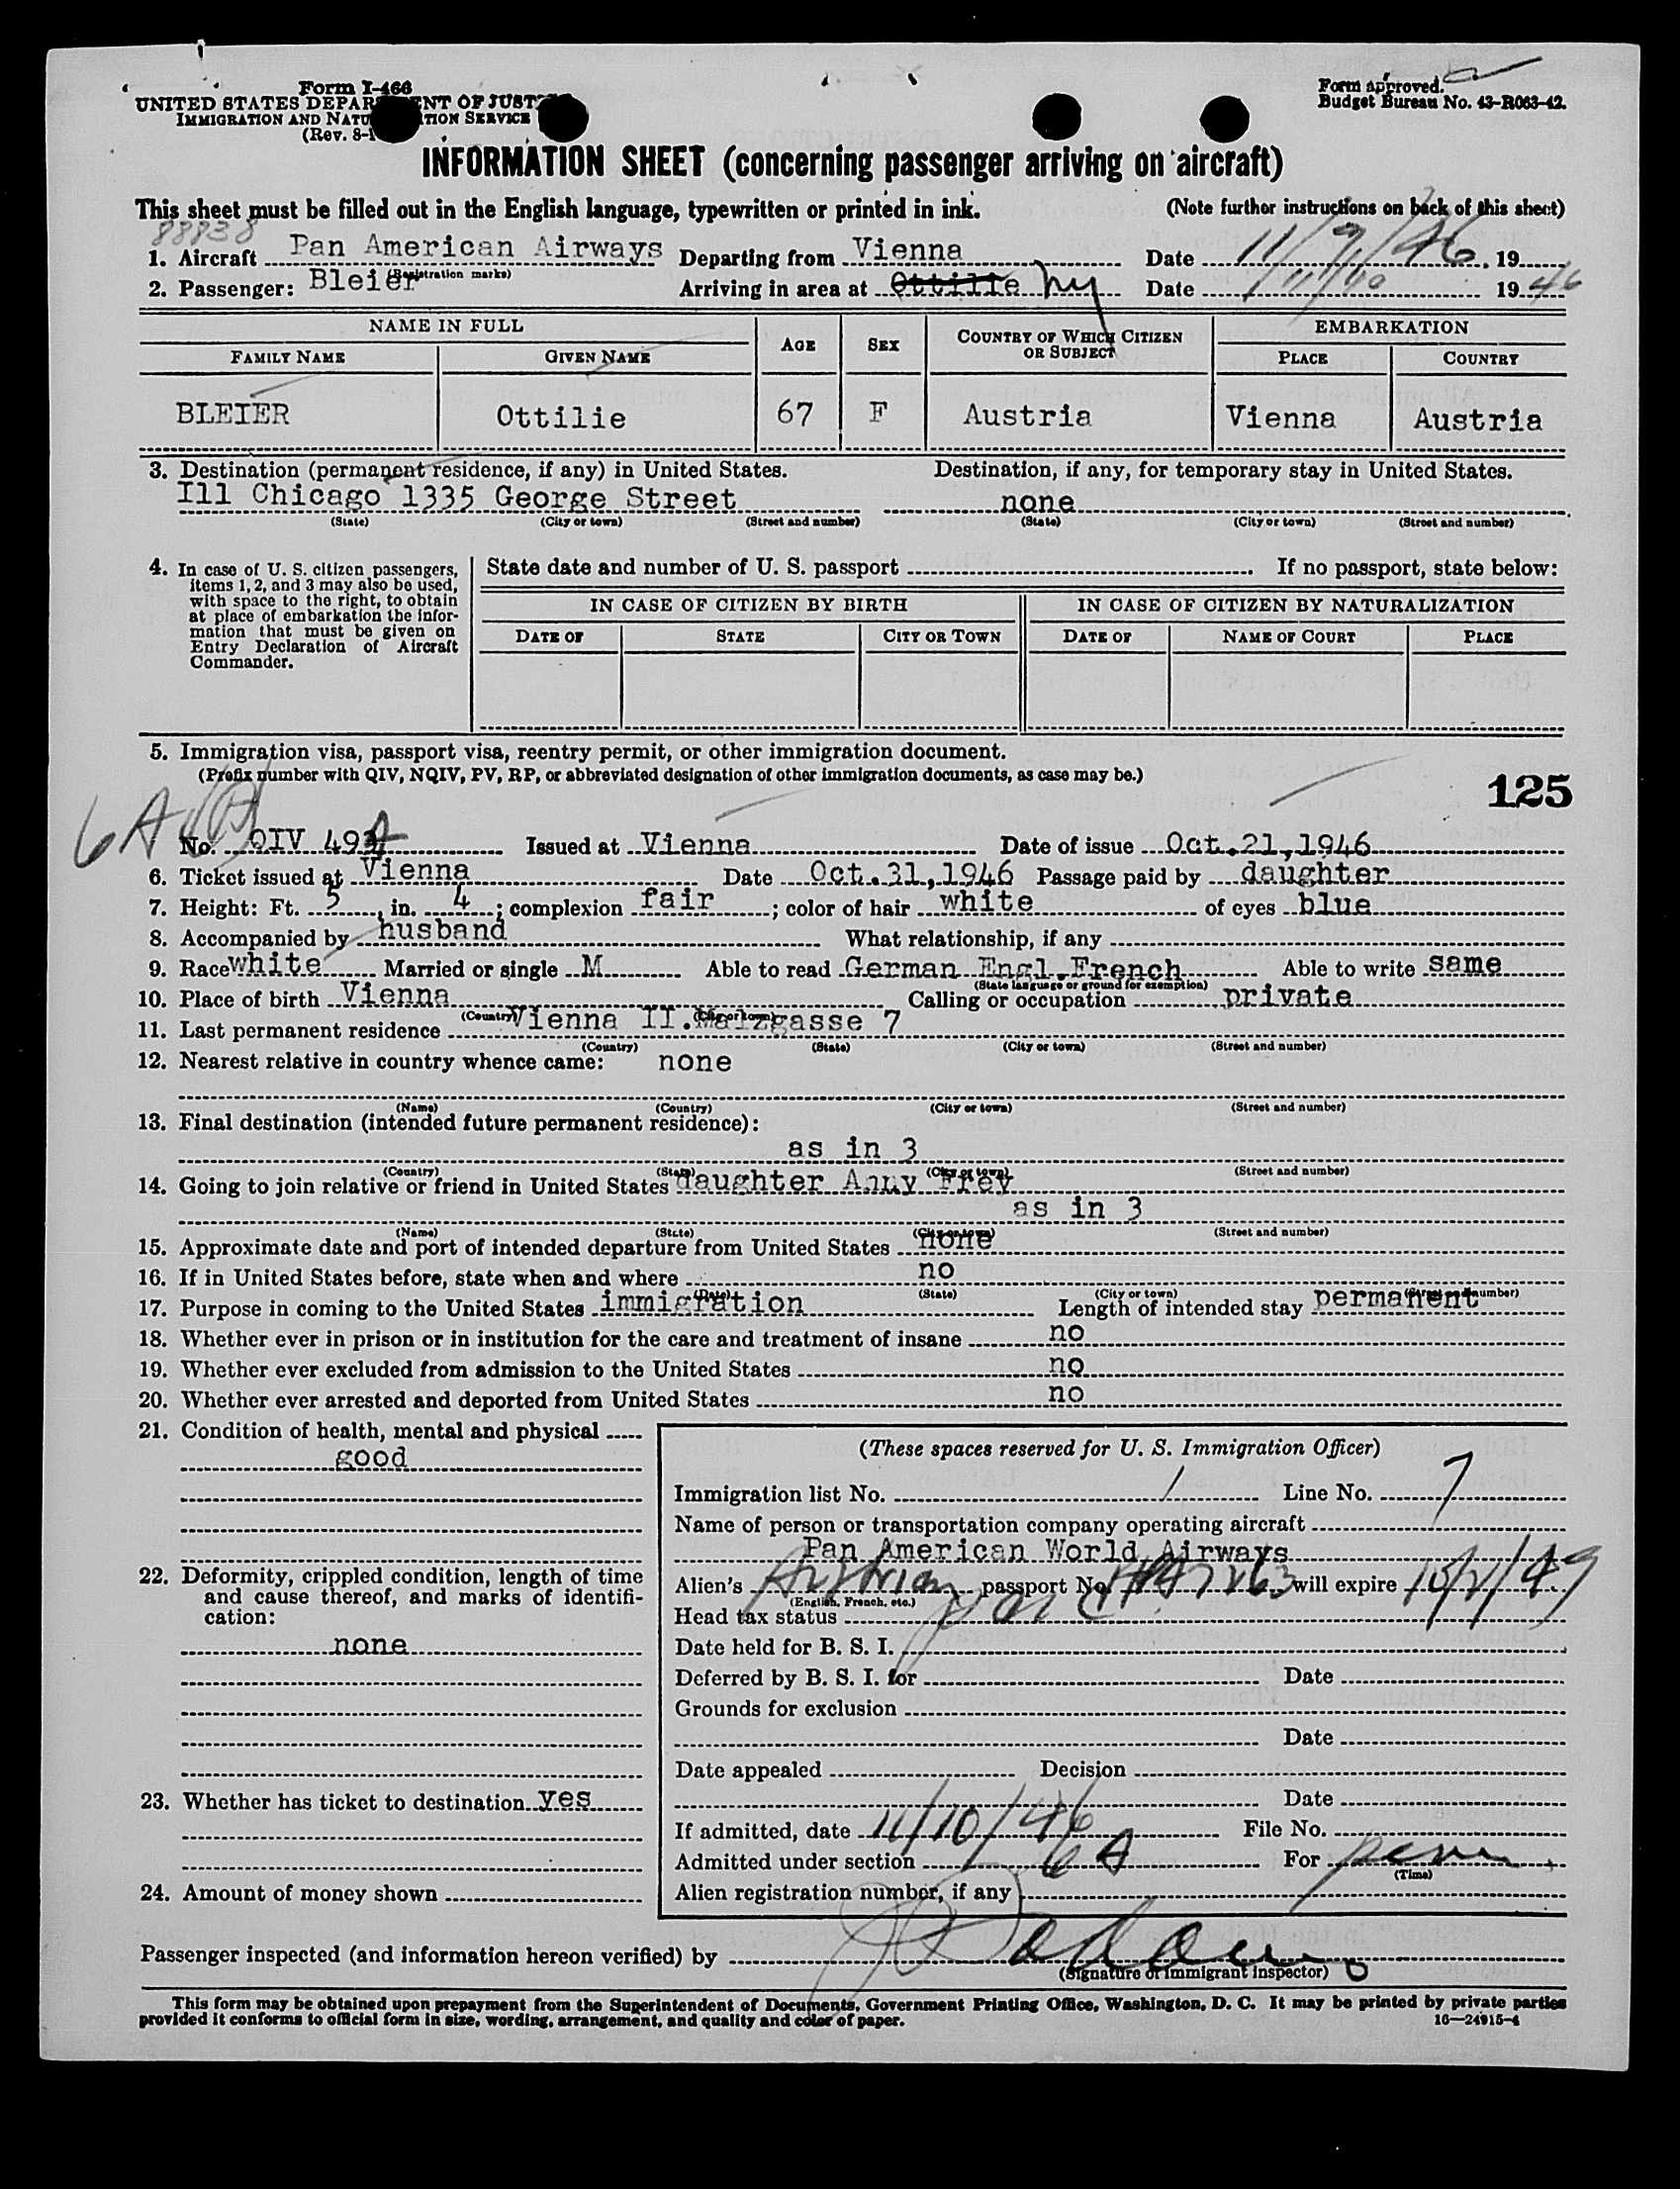 Form I-466
UNITED STATES DEPAR ENT OF JUST
IMMIGRATION AND NATU TION SERVICE
(Rev. 8-1
Form approved.
Budget Bureau No. 43-R063-42.
INFORMATION SHEET (concerning passenger arriving on aircraft)
This sheet must be filled out in the English language, typewritten or printed in ink. (Note further instructions on back of this sheet)
88838
1. Aircraft Pan American Airways Departing from Vienna Date 11/9/46, 19
(Registration marks)
2. Passenger: Bleier Arriving in area at Ottilie ny Date 19 46
NAME IN FULL AGE SEX COUNTRY OF WHICH CITIZEN OR SUBJECT EMBARKATION
FAMILY NAME GIVEN NAME PLACE COUNTRY
BLEIER Ottilie 67 F Austria Vienna Austria
3. Destination (permanent residence, if any) in United States. Destination, if any, for temporary stay in United States.
Ill Chicago 1335 George Street none
(State) (City or town) (Street and number) (State) (City or town) (Street and number)
4. In case of U. S. citizen passengers,
items 1, 2, and 3 may also be used,
with space to the right, to obtain
at place of embarkation the infor-
mation that must be given on
Entry Declaration of Aircraft
Commander.
State date and number of U. S. passport . If no passport, state below:
IN CASE OF CITIZEN BY BIRTH IN CASE OF CITIZEN BY NATURALIZATION
DATE OF STATE CITY OR TOWN DATE OF NAME OF COURT PLACE
5. Immigration visa, passport visa, reentry permit, or other immigration document.
(Prefix number with QIV, NQIV, PV, RP, or abbreviated designation of other immigration documents, as case may be.)
125
6A
No. QIV 493 Issued at Vienna Date of issue Oct.21,1946
6. Ticket issued at Vienna Date Oct.31,1946 Passage paid by daughter
7. Height: Ft. 5, in. 4; complexion fair; color of hair white of eyes blue
8. Accompanied by husband What relationship, if any
9. Race white Married or single M Able to read German Engl.French Able to write same
(State language or ground for exemption)
10. Place of birth Vienna Calling or occupation private
(Country) (City or town)
11. Last permanent residence Vienna II.Malzgasse 7
(Country) (State) (City or town) (Street and number)
12. Nearest relative in country whence came: none
(Name) (Country) (City or town) (Street and number)
13. Final destination (intended future permanent residence):
as in 3
(Country) (State) (City or town) (Street and number)
14. Going to join relative or friend in United States daughter Anny Frey
as in 3
(Name) (State) (City or town) (Street and number)
15. Approximate date and port of intended departure from United States none
16. If in United States before, state when and where no
(Date) (State) (City or town) (Street and number)
17. Purpose in coming to the United States immigration Length of intended stay permanent
18. Whether ever in prison or in institution for the care and treatment of insane no
19. Whether ever excluded from admission to the United States no
20. Whether ever arrested and deported from United States no
21. Condition of health, mental and physical
good
22. Deformity, crippled condition, length of time
and cause thereof, and marks of identifi-
cation:
none
23. Whether has ticket to destination yes
24. Amount of money shown
(These spaces reserved for U. S. Immigration Officer)
Immigration list No. 1 Line No. 7
Name of person or transportation company operating aircraft
Pan American World Airways
Alien's Austrian passport No. will expire
(English, French, etc.)
Head tax status paid
Date held for B. S. I.
Deferred by B. S. I. for Date
Grounds for exclusion
Date
Date appealed Decision
Date
If admitted, date 11/10/46 File No.
Admitted under section 6A For perm
(Time)
Alien registration number, if any
Passenger inspected (and information hereon verified) by
(Signature of immigrant inspector)
This form may be obtained upon prepayment from the Superintendent of Documents, Government Printing Office, Washington, D. C. It may be printed by private parties
provided it conforms to official form in size, wording, arrangement, and quality and color of paper. 16—24915-4